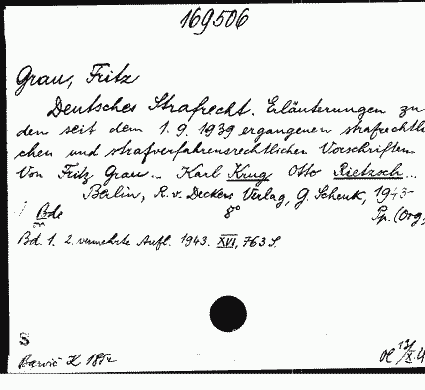 169506
Grau, Fritz
Deutsches Strafrecht. Erläuterungen zu
den seit dem 1.9.1939 ergangenen strafrechtli
chen und strafverfahrensrechtlichen Vorschriften
Von Fritz Grau... Karl Krug Otto Rietzsch...
Berlin, R.v. Deckers Verlag, G. Schenk, 1943-
Bde 8° Pp. (Org.
Bd. 1. 2. vermehrte Aufl. 1943. XVI, 763 S.
S
K